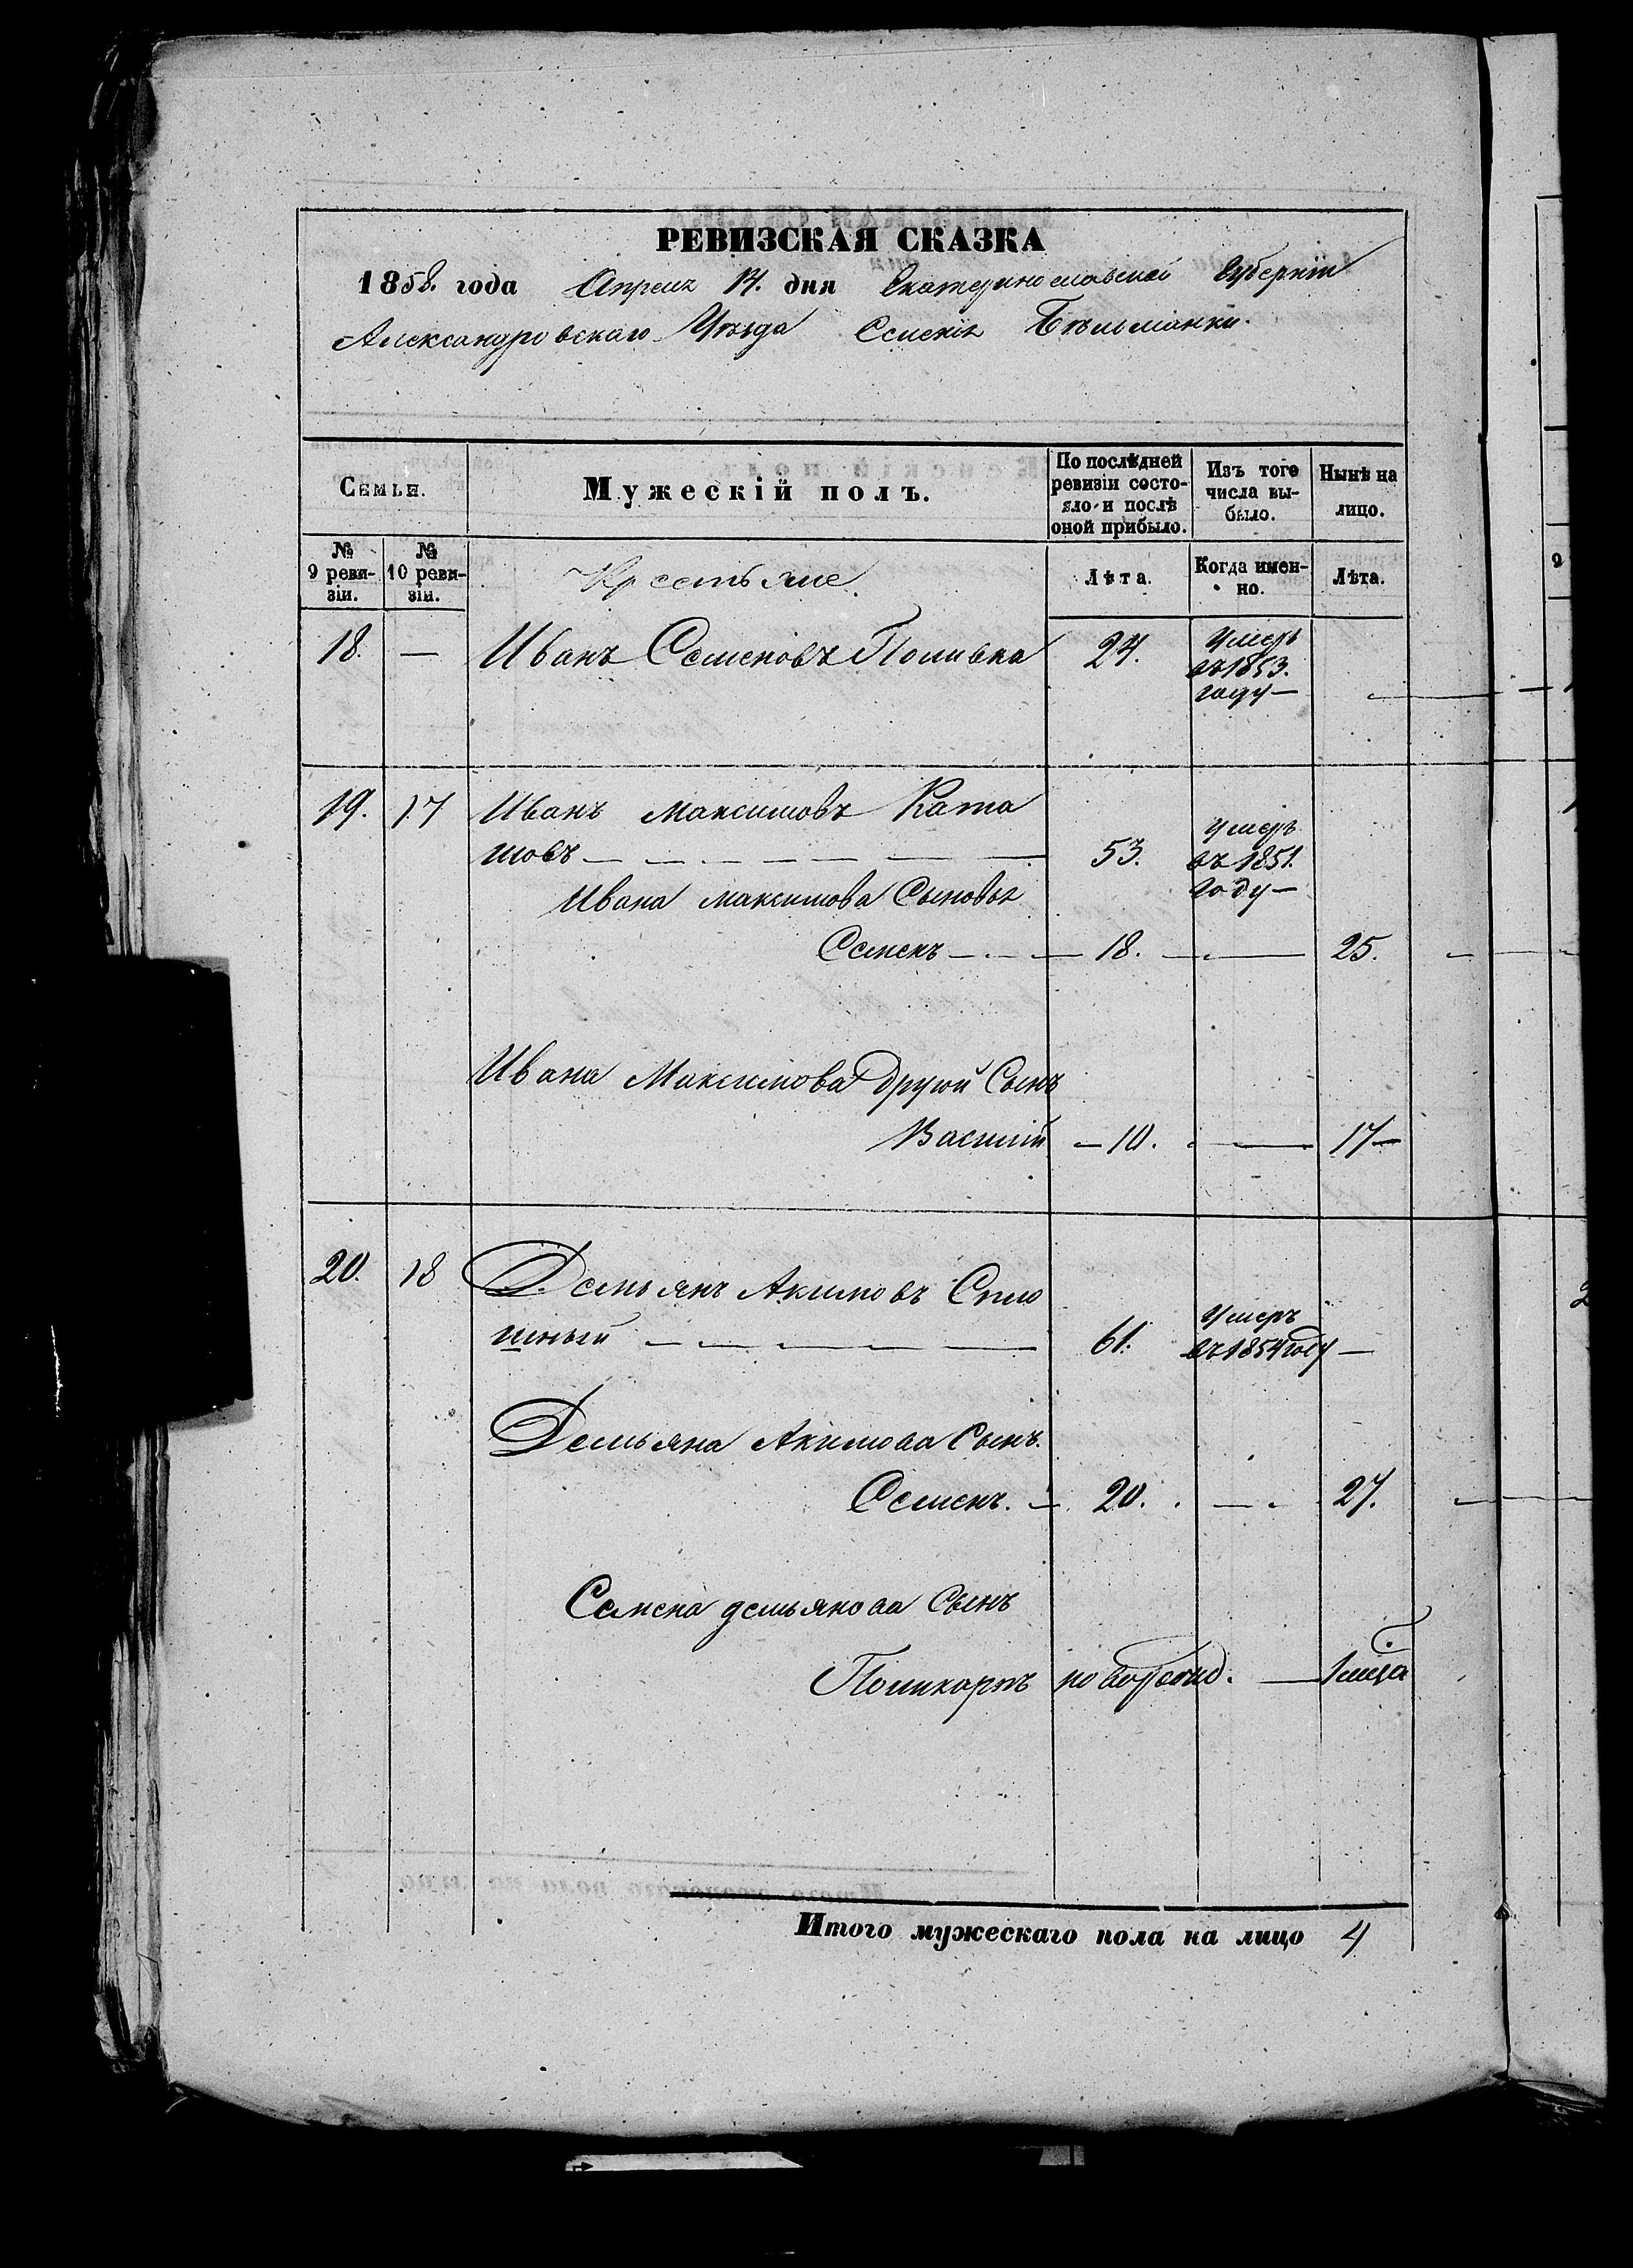 РЕВИЗСКАЯ СКАЗКА
1858. года Апреля 14. дня Екатеринославской Губернiи
Александровскаго Уѣзда Селенiя Бѣльманки.
СЕМЬИ.
Мужескiй полъ.
По послѣдней ревизiи состояло и послѣ оной прибыло.
Изъ того числа выбыло.
Нынѣ на лицо.
№ 9 ревизiи.
№ 10 ревизiи.
Крестьяне
Лѣта.
Когда именно.
Лѣта.
18. — Иванъ Семеновъ Поливка 24. Умеръ
въ 1853.
году —
19. 17 Иванъ Максимовъ Ката
шовъ — 53. умеръ
въ 1851.
году —
Ивана Максимова Сыновья
Семенъ — 18. — 25.
Ивана Максимова другой Сынъ
Василiй — 10. — 17 —
20. 18 Демьянъ Акимовъ Спло
шный — 61. Умеръ
въ 1854 году —
Демьяна Акимова Сынъ.
Семенъ. — 20. — 27.
Семена демьянова Сынъ
Поликарпъ новорожд. — 1 меся
Итого мужескаго пола на лицо 4